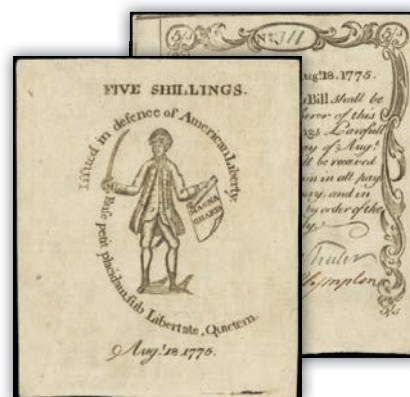 FIVE SHILLINGS.
Issued in defence of American Liberty.
MAGNA
CHARTA
Ense petit placidam, sub Libertate, Quietem.
Aug.t 18. 1775.
5/s
No 311
5/s
Aug.t 18. 1775.
Bill shall be
of this
Lawfull
of Aug.t
be received
in all pay
and in
by order of the
5/s